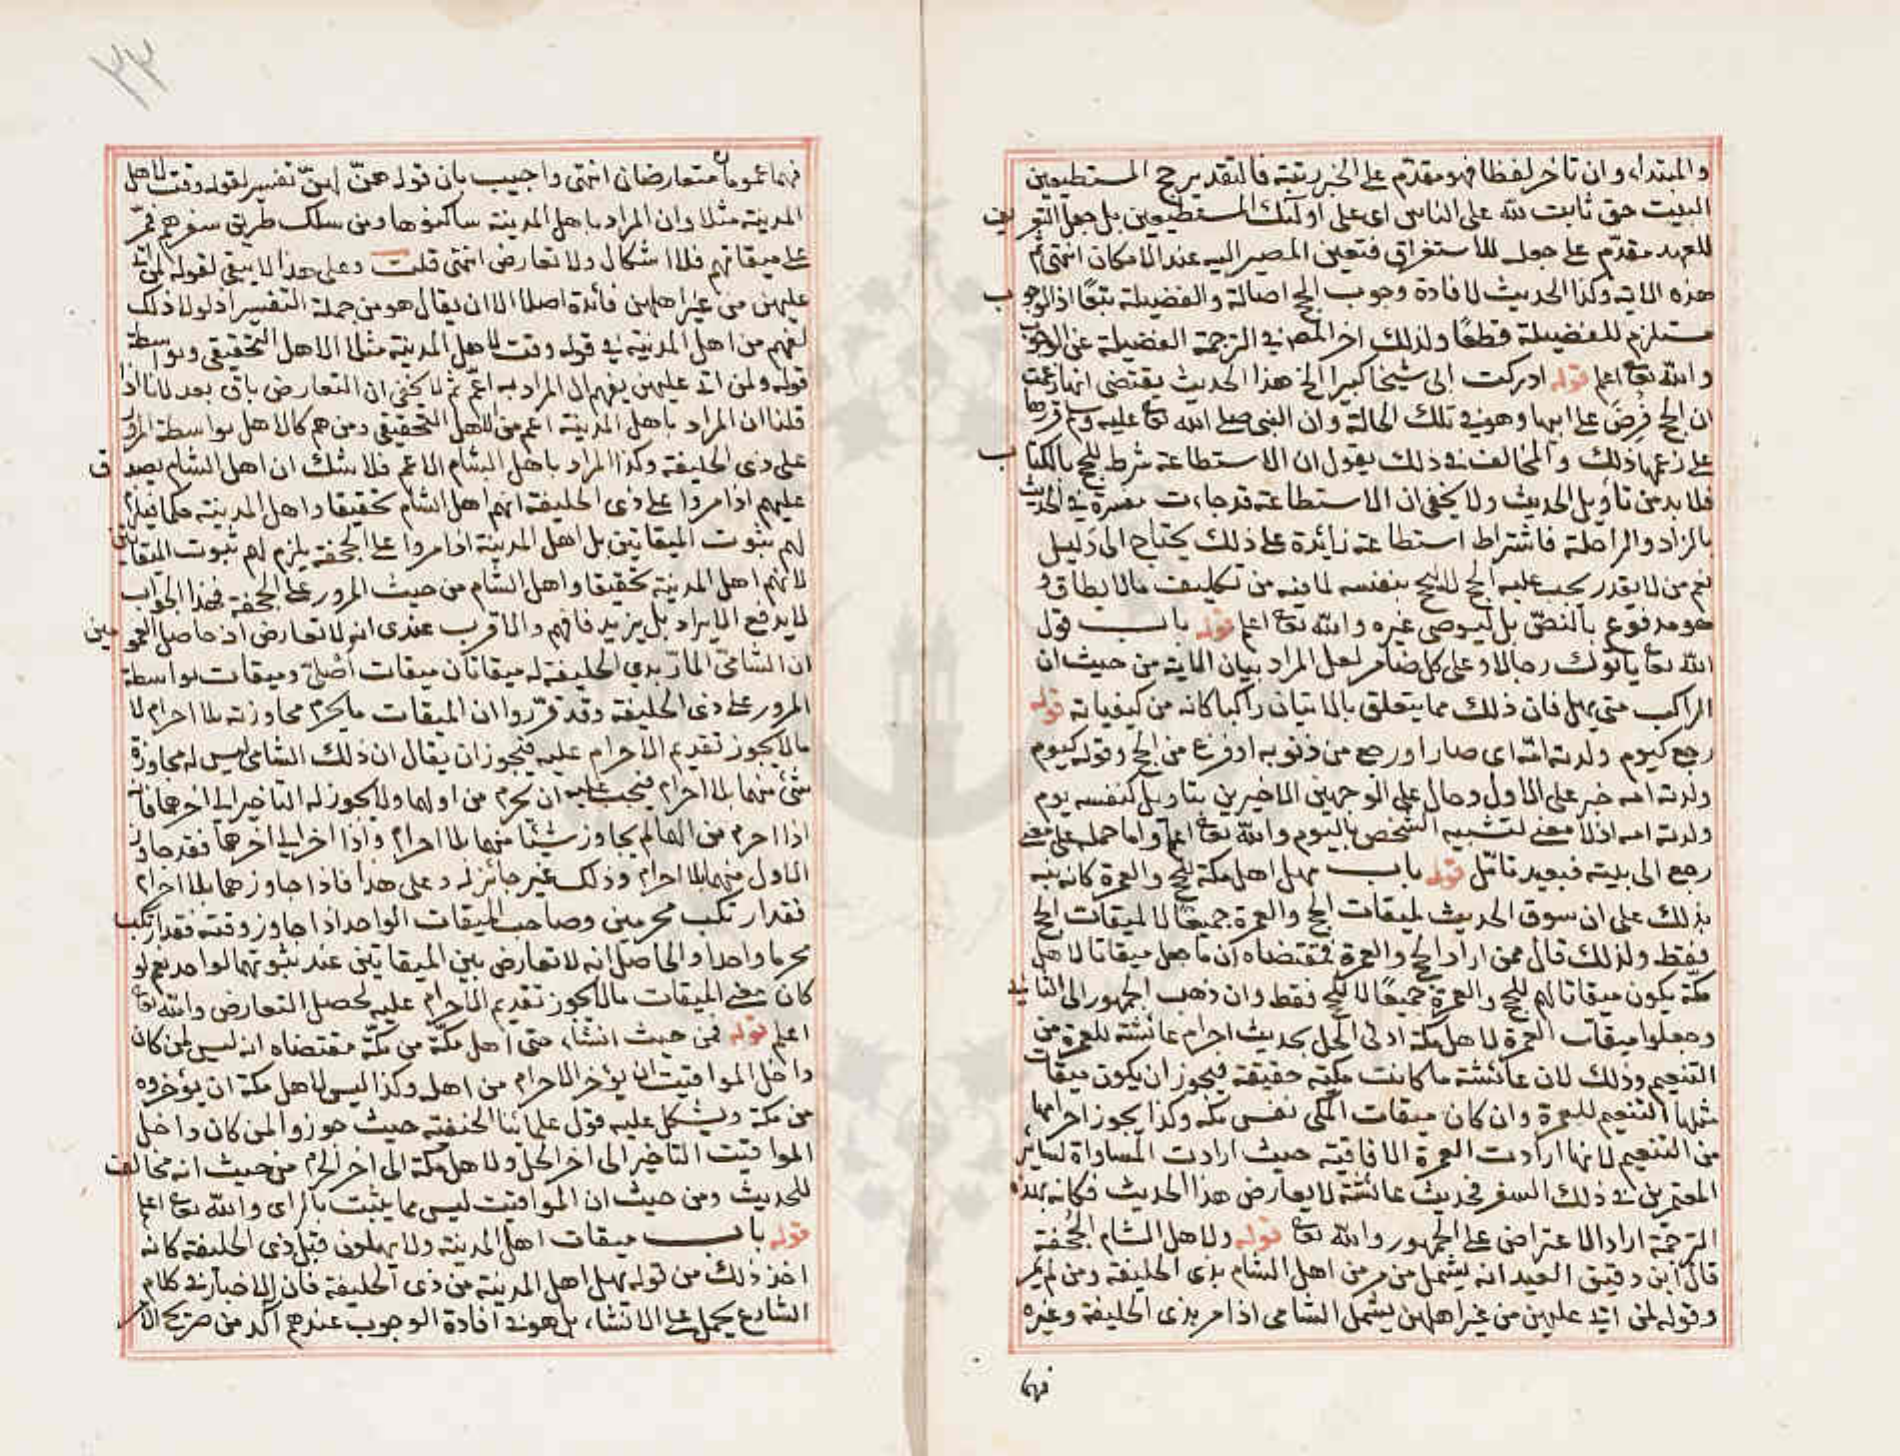 والمبتداء وان تاخر لفظا فهو مقدم على الخبر رتبة فالتقدير حج المستطيعين
البيت حق ثابت لله على الناس اى على اولئك المستطيعين بل جعل التعريف
للعهد مقدم على جعله للاستغراق فتعين المصير اليه عند الامكان انتهى ثم
هذه الاية وكذا الحديث لافادة وجوب الحج اصالة والفضيلة تبعًا اذ الوجوب
مستلزم للفضيلة قطعًا ولذلك اخر المصـ فى الترجمة الفضيلة عن الوجوب
والله تعا اعلم قوله ادركت ابى شيخا كبيرا الخ هذا الحديث يقتضى انها زعمت
ان الحج فرض على ابيها وهو فى تلك الحالة وان النبى صلى الله تعا عليه وسلم قررها
على زعمها ذلك والمخالف فى ذلك يقول ان الاستطاعة شرط للحج بالكتاب
فلا بد من تأويل الحديث ولا يخفى ان الاستطاعة قد جاءت مفسرة فى الحديث
بالزاد والراحلة فاشتراط استطاعة زائدة على ذلك يحتاج الى دليل
نعم من لا يقدر يجب عليه الحج لا ليحج بنفسه لما فيه من تكليف ما لا يطاق و
هو مدفوع بالنصّ بل ليوصى غيره والله تعا اعلم قوله باب قول
الله تعا ياتوك رجالا وعلى كل ضامر لعل المراد بيان الاية من حيث ان
الراكب متى يهل فان ذلك مما يتعلق بالاتيان راكبا كانه من كيفياته قوله
رجع كيوم ولدته امّه اى صار او رجع من ذنوبه او فرغ من الحج وقوله كيوم
ولدته امه خبر على الاول وحال على الوجهين الاخيرين بتاويل كنفسه يوم
ولدته امه اذ لا معنى لتشبيه الشخص باليوم والله تعا اعلم واما حمله على معنى
رجع الى بيته فبعيد تامّل قوله باب مهل اهل مكة للحج والعمرة كانه نبه
بذلك على ان سوق الحديث لميقات الحج والعمرة جميعًا لا لميقات الحج
فقط ولذلك قال ممن اراد الحج والعمرة فمقتضاه ان ما جعل ميقاتا لاهل
مكّة يكون ميقاتا لهم للحج والعمرة جميعًا لا للحج فقط وان ذهب الجمهور الى الثانى
وجعلوا ميقات العمرة لاهل مكة ادنى الحل بحديث احرام عائشة للعمرة من
التنعيم وذلك لان عائشة ما كانت مكيّة حقيقة فيجوز ان يكون ميقات
مثلها التنعيم للعمرة وان كان ميقات المكى نفس مكه وكذا يجوز احرامها
من التنعيم لانها ارادت العمرة الافاقية حيث ارادت المساواة لسائر
المعتمرين فى ذلك السفر فحديث عائشة لا يعارض هذا الحديث فكانه بهذه
الترجمة اراد الاعتراض على الجمهور والله تعا قوله ولاهل الشام الجُحفة
قال ابن دقيق العيد انه يشمل من مر من اهل الشام بذى الحليفة ومن لم يمر
وقوله لمن اتى عليهن من غير اهلهن يشمل الشامى اذا مر بذى الحليفة وغيره
فهما
٢٣
فهما عمومان متعارضان انتهى واجيب بان قوله هنّ لهنّ تفسير لقوله وقت لاهل
المدينة مثلا وان المراد باهل المدينة ساكنوها ومن سلك طريق سفرهم فمرّ
على ميقاتهم فلا اشكال ولا تعارض انتهى قلت وعلى هذا لا يبقى لقوله لمن اتى
عليهن من غير اهلهن فائدة اصلا الا ان يقال هو من جملة التفسير اذ لولا ذلك
لفهم من اهل المدينة فى قوله وقت لاهل المدينة مثلا الاهل التحقيقى وبواسطة
قوله ولمن اتى عليهن يفهم ان المراد به اعمّ ثم لا يخفى ان التعارض باق بعد لانا اذا
قلنا ان المراد باهل المدينة اعم من الاهل التحقيقى ومن هم كالاهل بواسطة المرور
على ذى الحليفة وكذا المراد باهل الشام الاعم فلا شك ان اهل الشام يصدق
عليهم اذا مروا على ذى الحليفة انهم اهل الشام تحقيقا واهل المدينة حكما فيلزم
لهم ثبوت الميقاتين بل اهل المدينة اذا مروا على الجحفة يلزم لهم ثبوت الميقاتين
لانهم اهل المدينة تحقيقا واهل الشام من حيث المرور على الجحفة فهذا الجواب
لا يدفع الايراد بل يزيد فافهم والاقرب عندى انه لا تعارض اذ حاصل العمومين
ان الشامىّ المارّ بذي الحليفة له ميقاتان ميقات أصلىّ وميقات بواسطة
المرور على ذى الحليفة وقد قرّروا ان الميقات ما يحرم مجاوزته بلا احرام لا
ما لا يجوز تقديم الاحرام عليه فيجوز ان يقال ان ذلك الشامى ليس له مجاوزة
شئ منهما بلا احرام فيجب عليه ان يحرم من اولهما ولا يجوز له التاخير الى اخرهما فانه
اذا احرم من اولهما لم يجاوز شيئا منهما بلا احرام واذا اخر الى اخرهما فقد جاوز
الاول منهما بلا احرام وذلك غير جائز له وعلى هذا فاذا جاوزهما بلا احرام
فقد ارتكب محرمين وصاحب الميقات الواحد اذا جاوز وقته فقد ارتكب
محرما واحدا والحاصل انه لا تعارض بين الميقاتين عند ثبوتهما لواحد نعم لو
كان معنى الميقات ما لا يجوز تقديم الاحرام عليه لحصل التعارض والله تعا
اعلم قوله فمن حيث انشاء حتى اهل مكّة من مكّة مقتضاه انه ليس لمن كان
داخل المواقيت ان يؤخر الاحرام من اهله وكذا ليس لاهل مكة ان يؤخروه
من مكة ويشكل عليه قول علمائنا الحنفية حيث جوزوا لمن كان داخل
المواقيت التاخير الى اخر الحل ولاهل مكّة الى اخر الحرم من حيث انه مخالف
للحديث ومن حيث ان المواقيت ليس مما يثبت بالراى والله تعا اعلم
قوله باب ميقات اهل المدينة ولا يهلون قبل ذى الحليفة كانه
اخذ ذلك من قوله يهل اهل المدينة من ذى الحليفة فان الاخبار فى كلام
الشارع يحمل على الانشاء بل هو فى افادة الوجوب عندهم آكد من صريح الامر